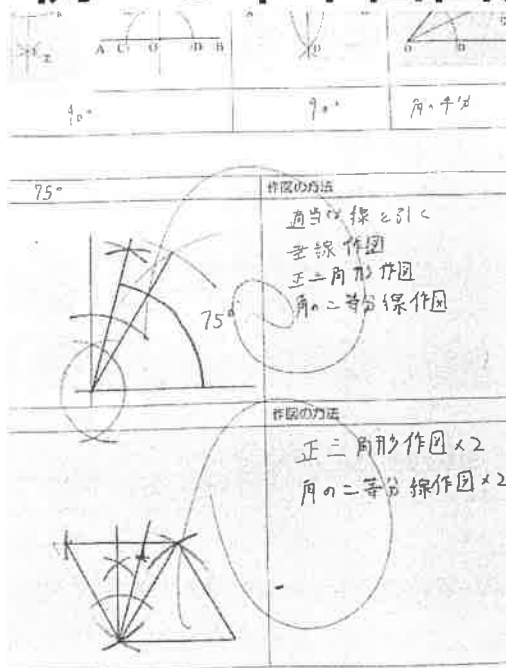 A C O D B
D
O B
90°
90°
角の半分
75°
作図の方法
適当な線を引く
垂線作図
正三角形作図
角の二等分線作図
75°
作図の方法
正三角形作図×2
角の二等分線作図×2